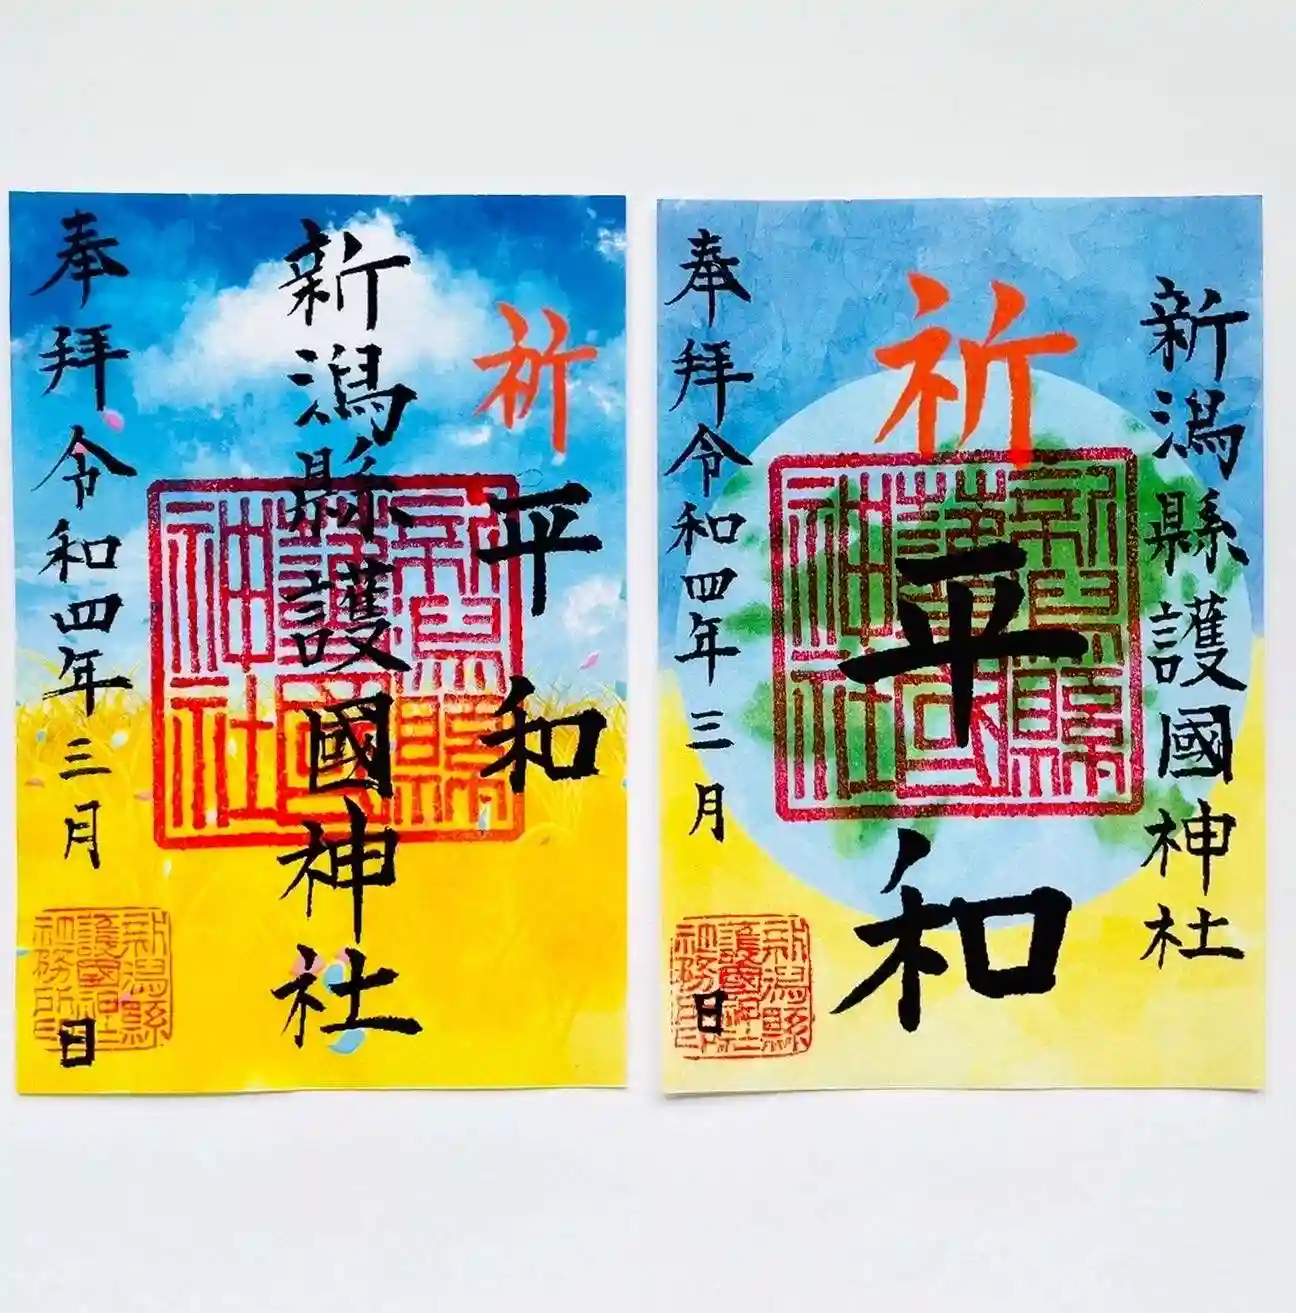 祈平和
新潟縣護國神社
奉拜令和四年三月 日
新潟縣護國神社
新潟縣護國神社社務所印
新潟縣護國神社
祈平和
奉拜令和四年三月 日
新潟縣護國神社
新潟縣護國神社社務所印